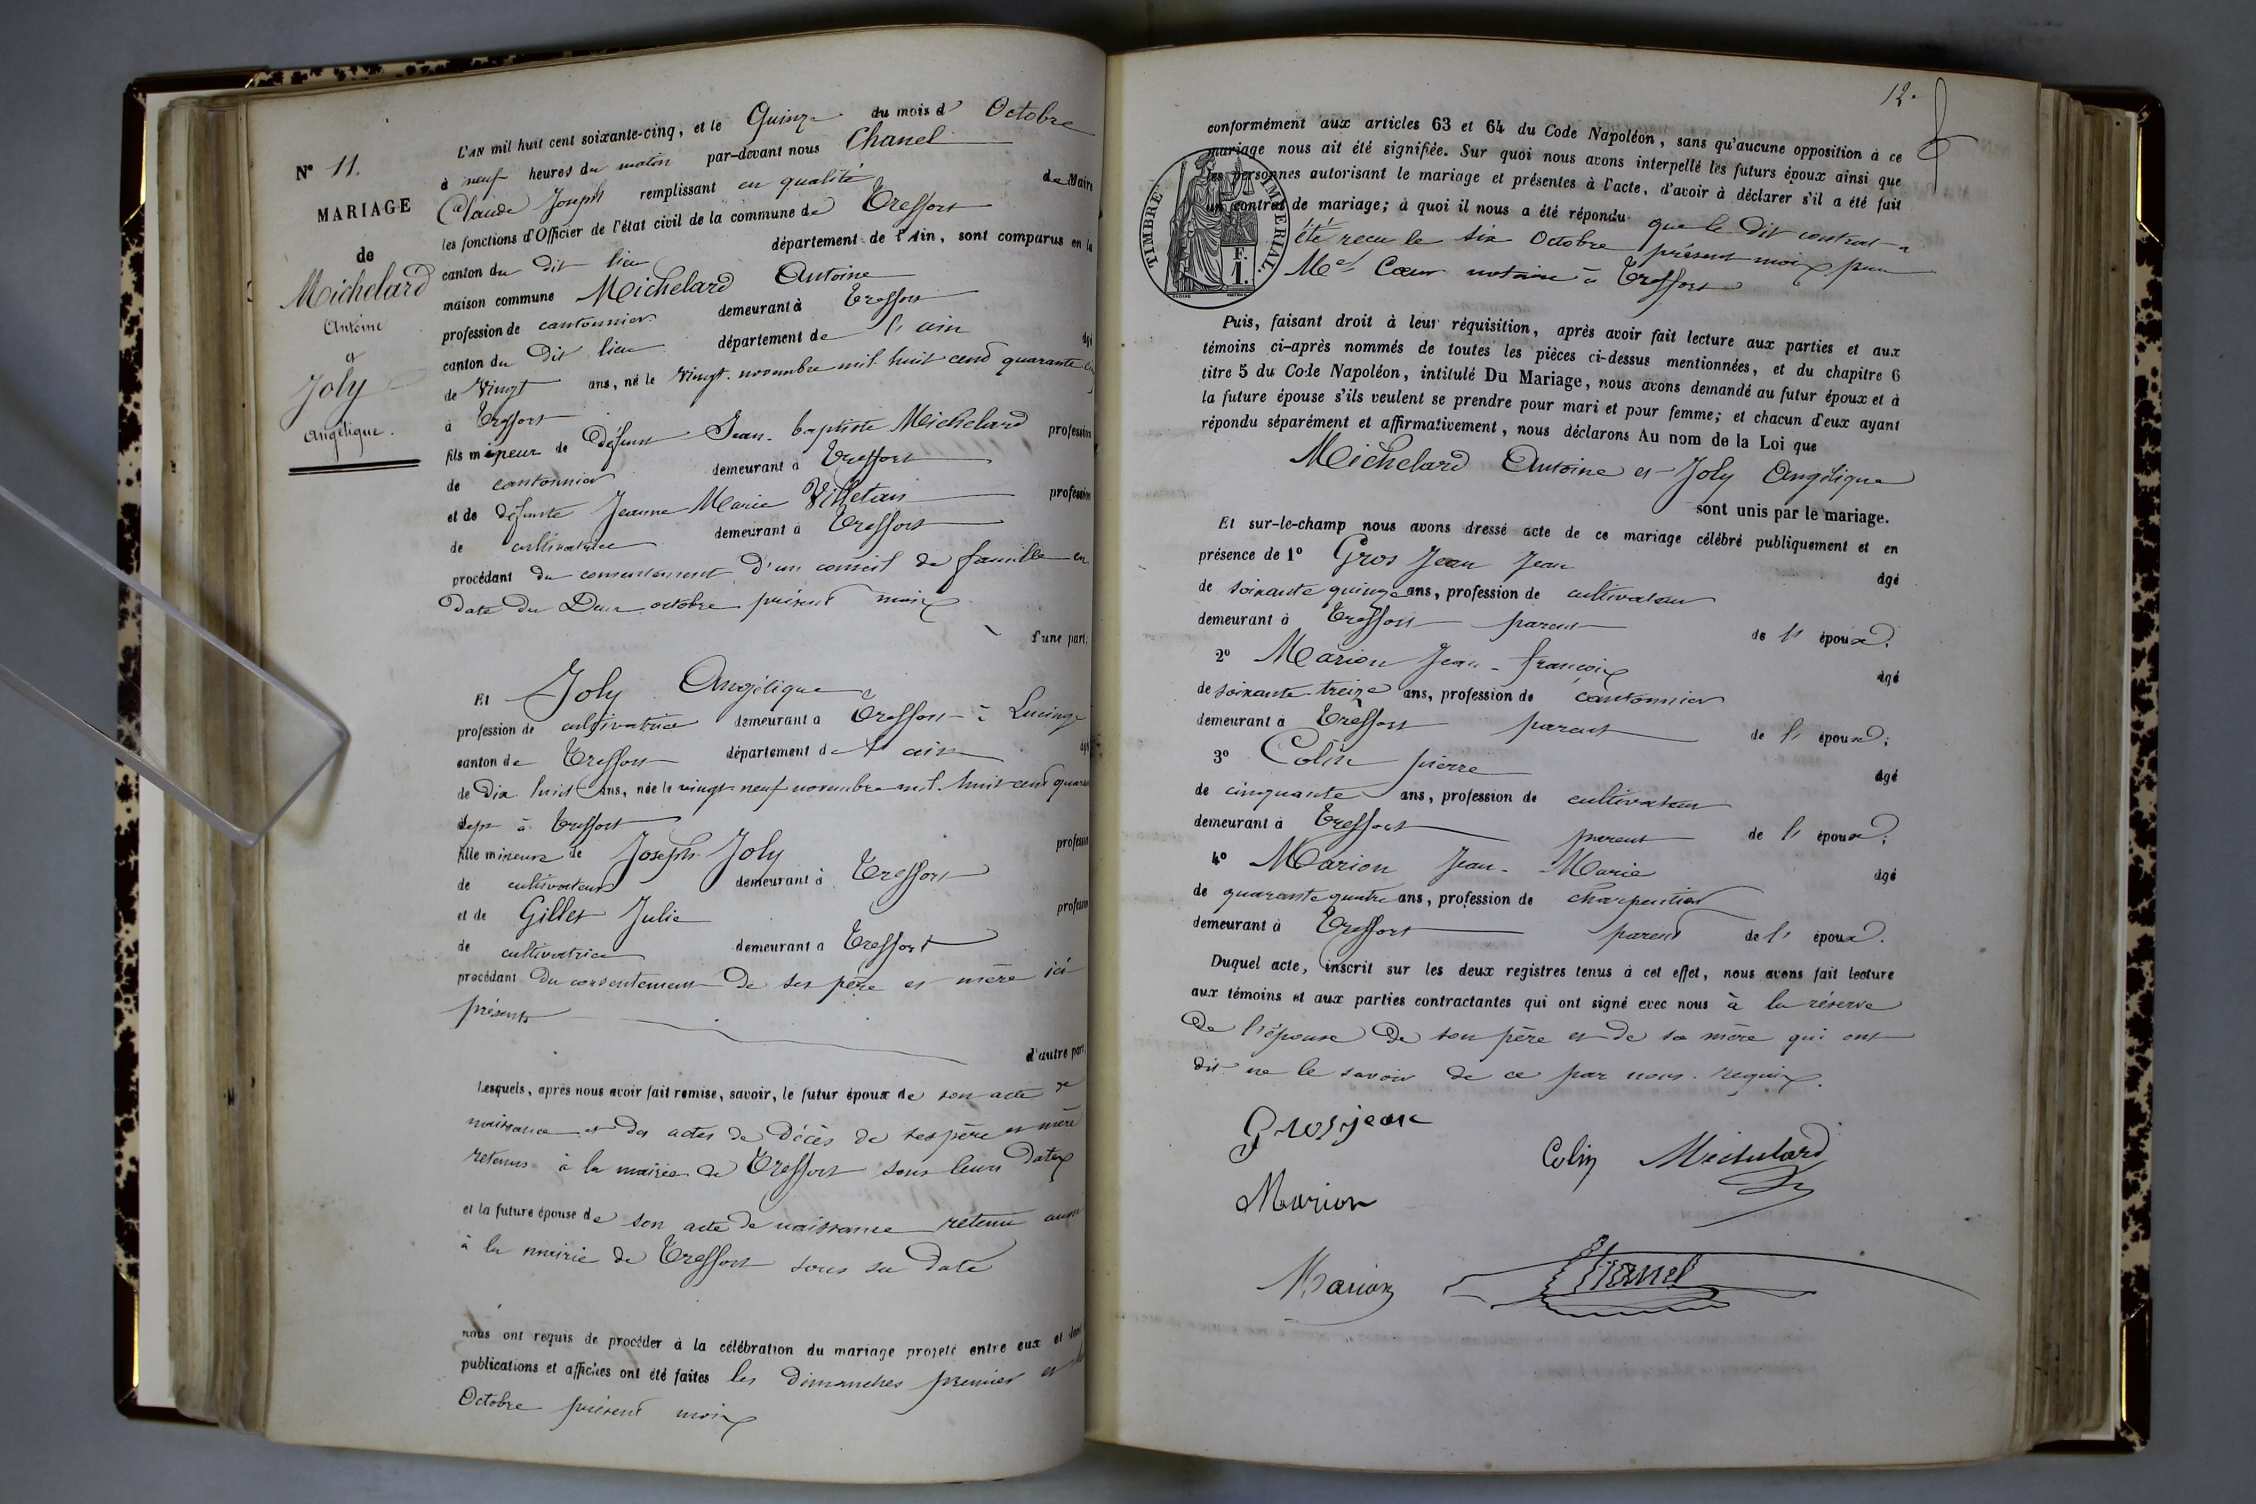 N° 11.
MARIAGE
de
Michelard
Antoine
et
Joly
Angélique.
L'AN mil huit cent soixante-cinq, et le Quinze du mois d' Octobre
à neuf heures du matin par-devant nous Chanel
Claude Joseph remplissant en qualité de Maire
les fonctions d'Officier de l'état civil de la commune de Treffort
canton du dit lieu département de l'Ain, sont comparus en la
maison commune Michelard Antoine
profession de cantonnier demeurant à Treffort
canton du dit lieu département de l'ain âgé
de Vingt ans, né le vingt novembre mil huit cent quarante
à Treffort
fils mineur de défunt Jean-baptiste Michelard profession
de cantonnier demeurant à Treffort
et de défunte Jeanne Marie Villetan profession
de cultivatrice demeurant à Treffort
procédant du consentement d'un conseil de famille en
date du Deux octobre présent mois
d'une part;
Et Joly Angélique
profession de cultivatrice demeurant à Treffort à Lucinge
canton de Treffort département de l'ain
de Dix huit ans, née le vingt neuf novembre mil huit cent
sept à Treffort
fille mineure de Joseph Joly profession
de cultivateur demeurant à Treffort
et de Gillet Julie profession
de cultivatrice demeurant à Treffort
procédant du consentement de ses père et mère ici
présents
d'autre part.
Lesquels, après nous avoir fait remise, savoir, le futur époux de son acte de
naissance et des actes de décès de ses père et mère
retenus à la mairie de Treffort sous leurs dates
et la future épouse de son acte de naissance retenu aussi
à la mairie de Treffort sous sa date
nous ont requis de procéder à la célébration du mariage projeté entre eux et dont
publications et affiches ont été faites les dimanches premier et
Octobre présent mois
12.
conformément aux articles 63 et 64 du Code Napoléon, sans qu'aucune opposition à ce
mariage nous ait été signifiée. Sur quoi nous avons interpellé les futurs époux ainsi que
les personnes autorisant le mariage et présentes à l'acte, d'avoir à déclarer s'il a été fait
un contrat de mariage; à quoi il nous a été répondu que le dit contrat a
été recu le six Octobre présent mois par
Me Cœur notaire à Treffort
TIMBRE IMPERIAL.
1 F.
Puis, faisant droit à leur réquisition, après avoir fait lecture aux parties et aux
témoins ci-après nommés de toutes les pièces ci-dessus mentionnées, et du chapitre 6
titre 5 du Code Napoléon, intitulé Du Mariage, nous avons demandé au futur époux et à
la future épouse s'ils veulent se prendre pour mari et pour femme; et chacun d'eux ayant
répondu séparément et affirmativement, nous déclarons Au nom de la Loi que
Michelard Antoine et Joly Angélique
sont unis par le mariage.
Et sur-le-champ nous avons dressé acte de ce mariage célébré publiquement et en
présence de 1° Gros Jean Jean âgé
de soixante quinze ans, profession de cultivateur
demeurant à Treffort parent de l' époux.
2° Marion Jean-françois âgé
de soixante-treize ans, profession de cantonnier
demeurant à Treffort parent de l' époux;
3° Colin pierre âgé
de cinquante ans, profession de cultivateur
demeurant à Treffort parent de l' époux;
4° Marion Jean-Marie âgé
de quarante quatre ans, profession de charpentier
demeurant à Treffort parent de l' époux.
Duquel acte, inscrit sur les deux registres tenus à cet effet, nous avons fait lecture
aux témoins et aux parties contractantes qui ont signé avec nous à la réserve
de l'épouse de son père et de sa mère qui ont
dit ne le savoir de ce par nous requis.
Grosjean
Colin Michelard
Marion
Marion
Chanel